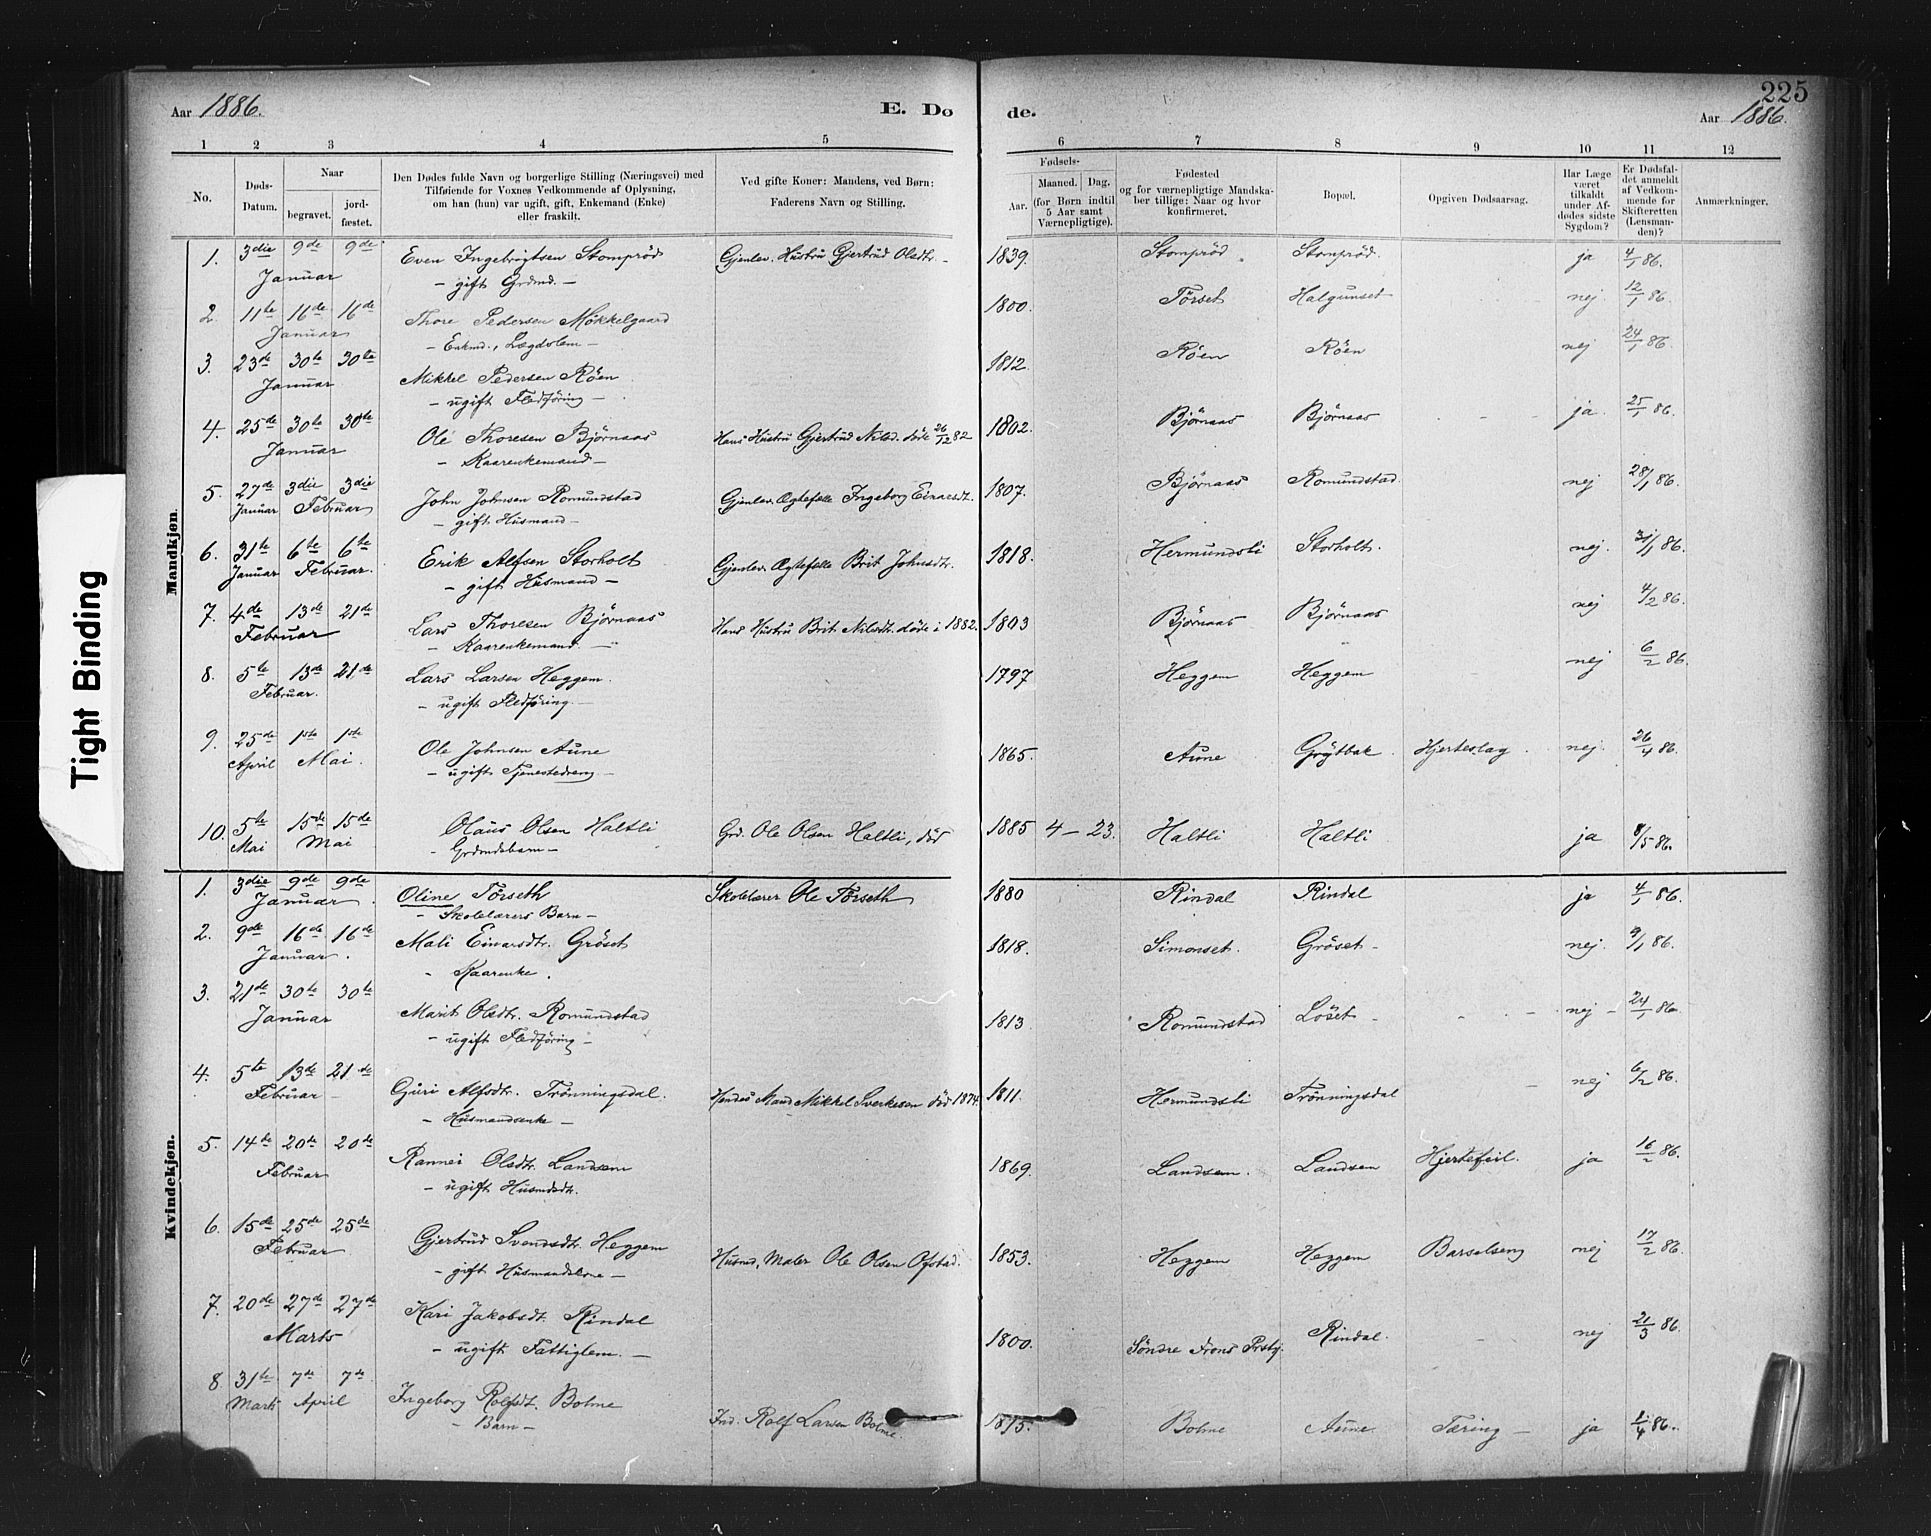 225
Aar 1886.
E. Dø
de.
Aar 1886.
1 2 3 4 5 6 7 8 9 10 11 12
No.
Døds-
Datum.
Naar
begravet.
jord-
fæstet.
Den Dødes fulde Navn og borgerlige Stilling (Næringsvei) med
Tilføiende for Voxnes Vedkommende af Oplysning,
om han (hun) var ugift, gift, Enkemand (Enke)
eller fraskilt.
Ved gifte Koner: Mandens, ved Børn:
Faderens Navn og Stilling.
Fødsels-
Aar.
Maaned. Dag.
(for Børn indtil
5 Aar samt
Værnepligtige).
Fødested
og for værnepligtige Mandska-
ber tillige: Naar og hvor
konfirmeret.
Bopæl.
Opgiven Dødsaarsag.
Har Læge
været
tilkaldt
under Af-
dødes sidste
Sygdom?
Er Dødsfal-
det anmeldt
af Vedkom-
mende for
Skifteretten
(Lensman-
den)?
Anmærkninger.
Tight Binding
Mandkjøn.
1. 3die 9de 9de Even Ingebrigtsen Stomprød Gjenlev. Hustru Gjertrud Olsdtr. 1839. Stomprød Stomprød. ja 4/1 86.
Januar - gift Grdmd. -
2. 11te 16de 16de Thore Pedersen Møkkelgaard 1800. Tørset Halgunset nej 12/1 86.
Januar - Enkmd., Lægdslem -
3. 23de 30te 30te Mikkel Pedersen Röen 1812. Röen Röen nej 24/1 86.
Januar - ugift Fledföring -
4. 25de 30te 30te Ole Thoresen Björnaas Hans Hustru Gjertrud Nilsd. døde 26/12 82 1802. Björnaas Björnaas ja. 25/1 86.
Januar - Kaarenkemand -
5. 27de 3die 3die John Johnsen Romundstad Gjenlev. Ægtefælle Ingeborg Einarsdt. 1807. Björnaas Romundstad. nej 28/1 86.
Januar Februar - gift Husmand -
6. 31te 6te 6te Erik Alfsen Storholt Gjenlev. Ægtefælle Brit Johnsdtr. 1818. Hermundsli Storholt. nej. 31/1 86.
Januar Februar. - gift Husmand -
7. 4de 13de 21de Lars Thoresen Björnaas Hans Hustru Brit Nilsdtr. døde i 1882. 1803 Björnaas Björnaas nej 4/2 86.
Februar - Kaarenkemand. -
8. 5te 13de 21de Lars Larsen Heggem. 1797 Heggem Heggem nej 6/2 86.
Februar. - ugift Fledföring. -
9. 25de 1ste 1ste Ole Johnsen Aune 1865. Aune Grytbak Hjerteslag. nej. 26/4 86.
April Mai. - ugift Tjenestedreng -
10. 5te 15de 15de Olaus Olsen Haltli Grd. Ole Olsen Haltli, død 1885 4 - 23. Haltli Haltli ja 8/5 86.
Mai Mai - Grdmdsbarn -
Kvindekjøn.
1. 3die 9de 9de Oline Törseth Skolelærer Ole Törseth 1880 Rindal Rindal ja 4/1 86.
Januar. - Skolelærers Barn -
2. 9de 16de 16de Mali Einarsdtr. Gröset 1818. Simonset. Gröset - nej. 9/1 86.
Januar. - Kaarenke.
3. 21de 30te 30te Marit Olsdtr. Romundstad 1813 Romundstad Löset - nej - 24/1 86.
Januar - ugift Fledföring -
4. 5te 13de 21de Guri Alfsdtr. Trönningsdal. Hendes Mand Mikkel Sverkesen död 1874. 1811. Hermundsli Trönningsdal nej 6/2 86.
Februar - Husmandsenke -
5. 14de 20de 20de Rannei Olsdtr. Landsem 1869. Landsem. Landsem Hjertefeil. ja 16/2 86.
Februar - ugift Husmdsdtr.
6. 15de 25de 25de Gjertrud Svendsdtr. Heggem Husmd, Maler Ole Olsen Ofstad. 1853. Heggem Heggem Barselseng nej 17/2 86.
Februar - gift Husmandskone -
7. 20de 27de 27de Kari Jakobsdt. Rindal 1800. Söndre Frons Prstg. Rindal. nej 21/3 86.
Marts - ugift Fattiglem. -
8 31te 7de 7de Ingeborg Rolfsdt. Bolme Ind. Rolf Larsen Bolme. 1875. Bolme Aune. Tæring - ja 1/4 86.
Marts April - Barn -